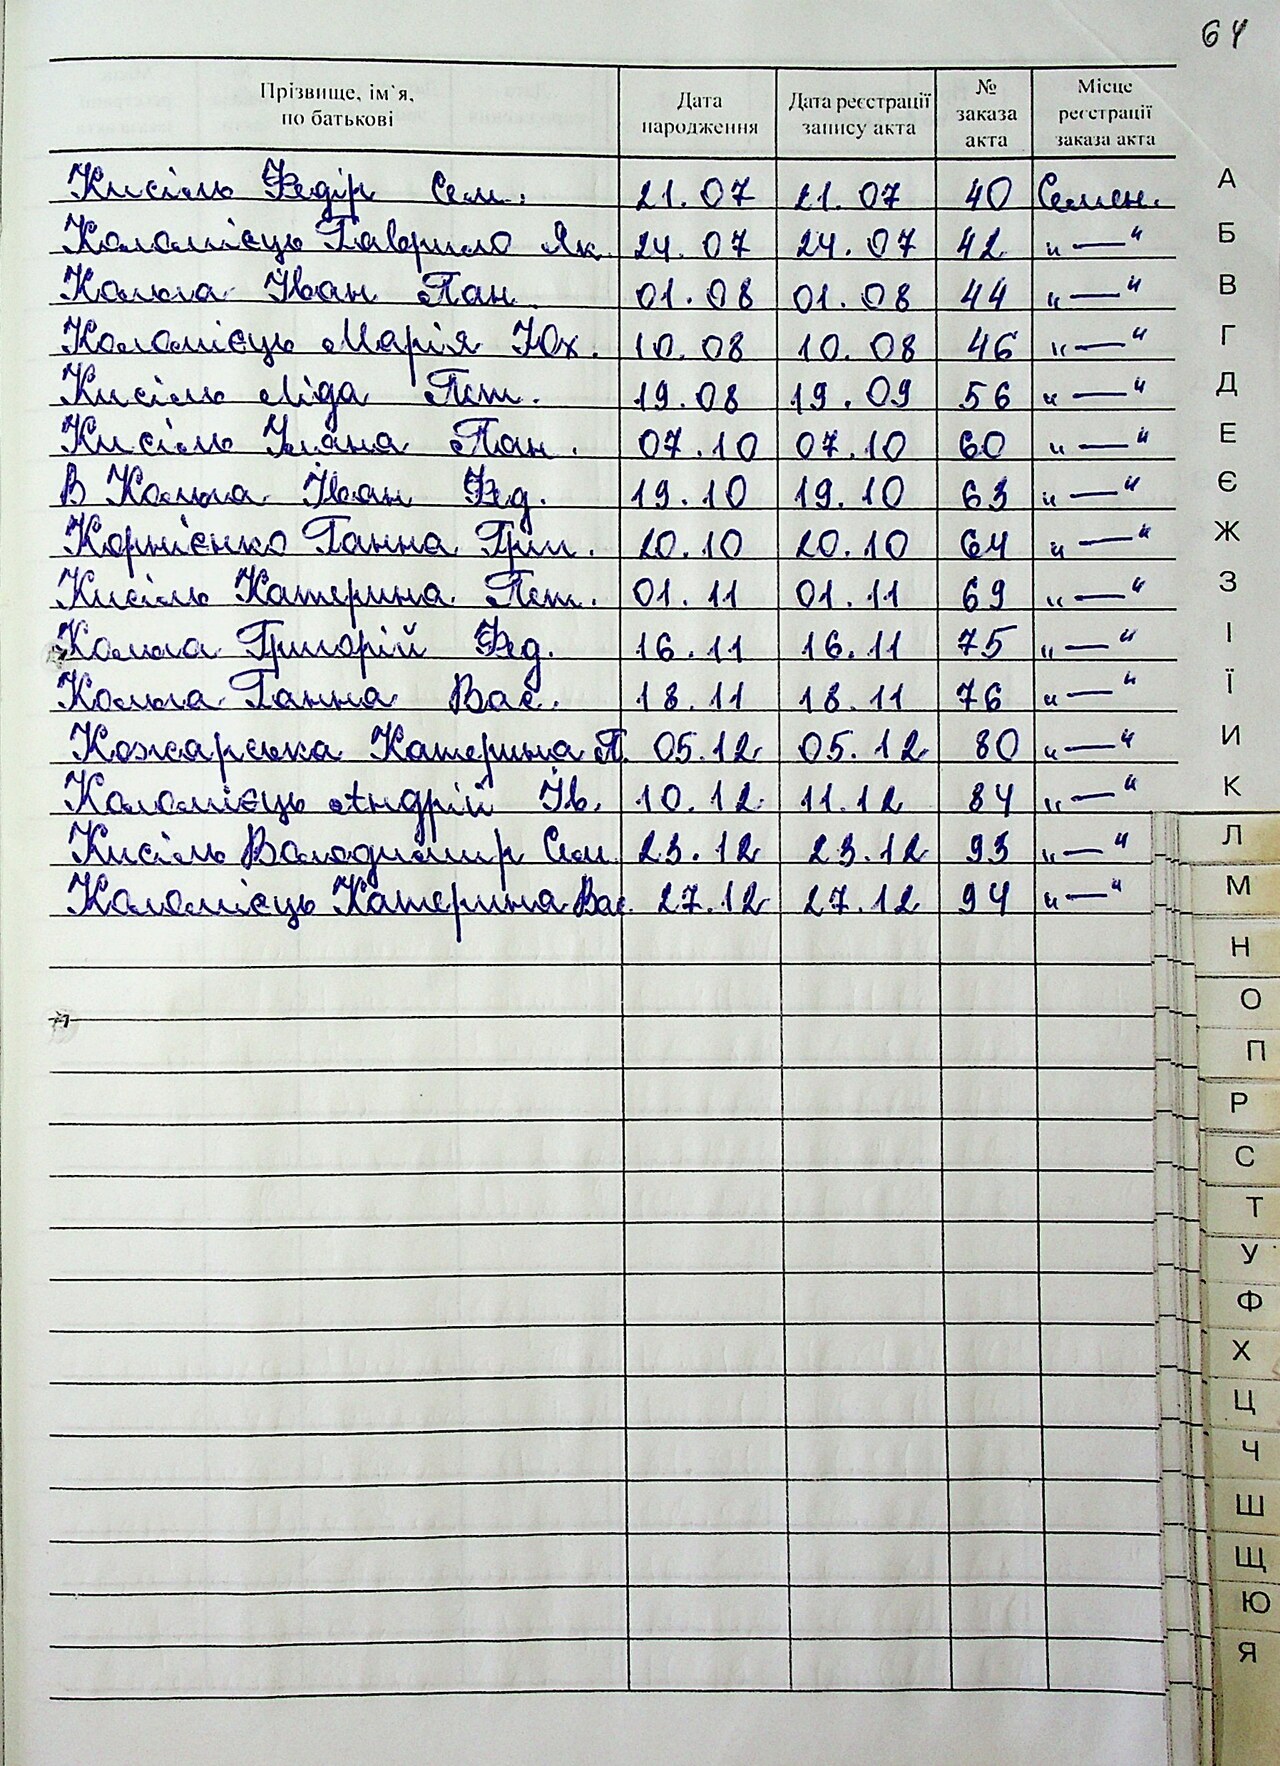 64
Прізвище, ім`я, по батькові | Дата народження | Дата реєстрації запису акта | № заказа акта | Місце реєстрації заказа акта
Кисіль Федір Сем. 21.07 21.07 40 Семен.
Коломієць Гаврило Як. 24.07 24.07 42 "—"
Калита Іван Пан. 01.08 01.08 44 "—"
Коломієць Марія Юх. 10.08 10.08 46 "—"
Кисіль Ліда Пет. 19.08 19.09 56 "—"
Кисіль Уляна Пан. 07.10 07.10 60 "—"
В Іван Фед. 19.10 19.10 63 "—"
Корнієнко Ганна Гри. 20.10 20.10 64 "—"
Кисіль Катерина Пет. 01.11 01.11 69 "—"
Григорій Фед. 16.11 16.11 75 "—"
Ганна Вас. 18.11 18.11 76 "—"
Кожарська Катерина П. 05.12 05.12 80 "—"
Коломієць Андрій Ів. 10.12 11.12 84 "—"
Кисіль Володимир Сем. 23.12 23.12 93 "—"
Коломієць Катерина Вас. 27.12 27.12 94 "—"
А
Б
В
Г
Д
Е
Є
Ж
З
І
Ї
И
К
Л
М
Н
О
П
Р
С
Т
У
Ф
Х
Ц
Ч
Ш
Щ
Ю
Я